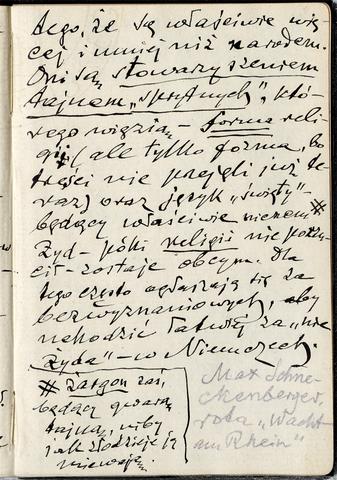 tego, że są właściwie wię-
cej i mniej niż narodem.
Oni są stowarzyszeniem
tajnem „sprytnych”, któ-
rego więzią – forma reli-
gji (ale tylko forma, bo
treści nie przejęli już te-
raz) oraz język „święty” –
będący właściwie niczem #
Żyd – póki religii nie porzu-
cił – zostaje obcym. Dla
tego często ogłaszają się za
bezwyznaniowych, aby
uchodzić łatwiej za „nie
żyda” – w Niemczech.
# Żargon zaś,
będący gwarą
tajną, niby
jak złodzieje ją
miewają.
Max Schne-
ckenberger,
rota „Wacht
am Rhein”